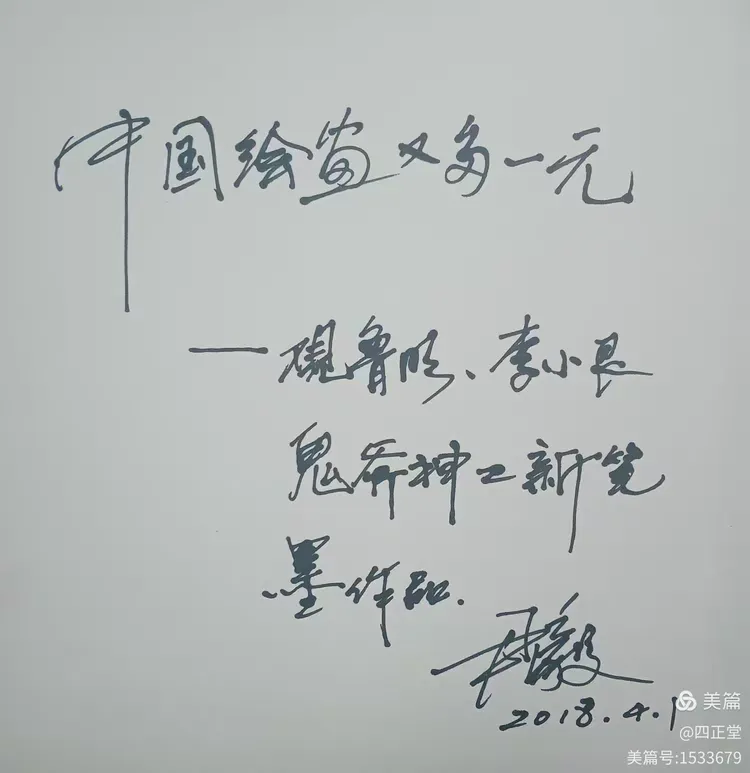 中国绘画又多一元
一观鲁明、李小良
鬼斧神工新笔
墨作品.
毅
2018.4.1
美篇
@四正堂
美篇号:1533679